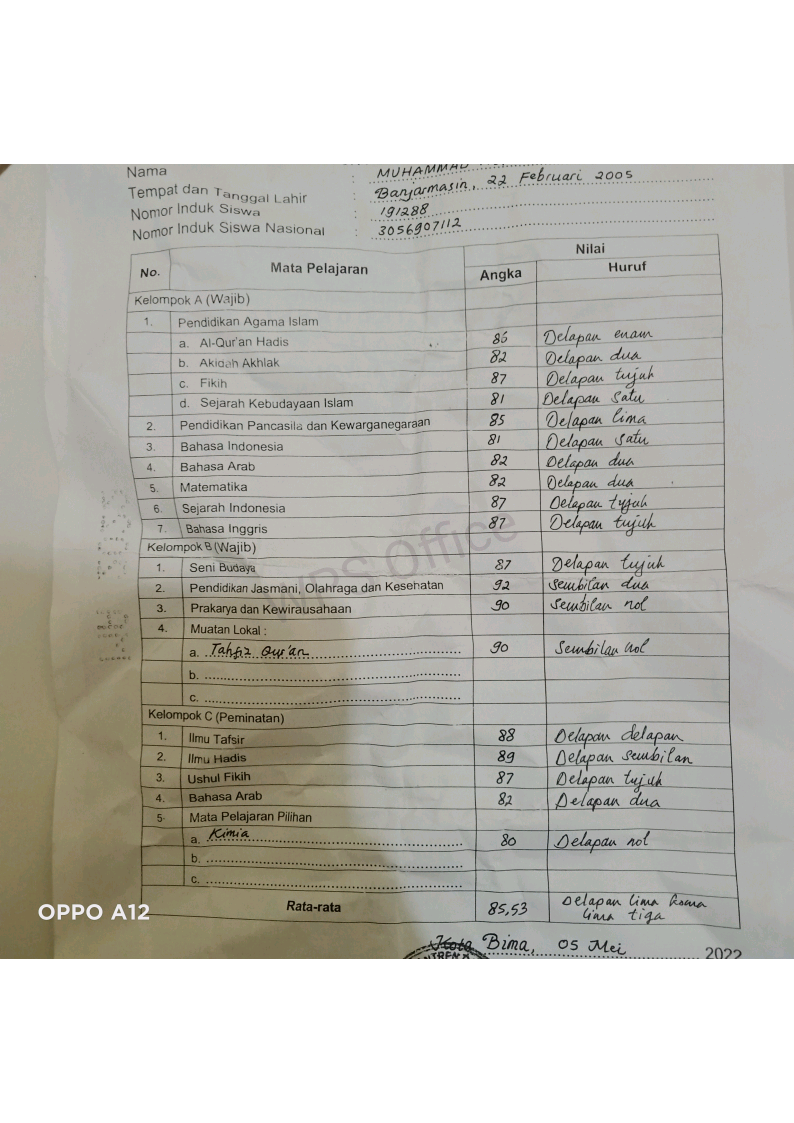 Nama : MUHAMMAD
Tempat dan Tanggal Lahir : Banjarmasin, 22 Februari 2005
Nomor Induk Siswa : 191288
Nomor Induk Siswa Nasional : 3056907112
No. Mata Pelajaran Nilai
Angka Huruf
Kelompok A (Wajib)
1. Pendidikan Agama Islam
a. Al-Qur'an Hadis 86 Delapan enam
b. Akidah Akhlak 82 Delapan dua
c. Fikih 87 Delapan tujuh
d. Sejarah Kebudayaan Islam 81 Delapan satu
2. Pendidikan Pancasila dan Kewarganegaraan 85 Delapan lima
3. Bahasa Indonesia 81 Delapan satu
4. Bahasa Arab 82 Delapan dua
5. Matematika 82 Delapan dua
6. Sejarah Indonesia 87 Delapan tujuh
7. Bahasa Inggris 87 Delapan tujuh
Kelompok B (Wajib)
1. Seni Budaya 87 Delapan tujuh
2. Pendidikan Jasmani, Olahraga dan Kesehatan 92 Sembilan dua
3. Prakarya dan Kewirausahaan 90 Sembilan nol
4. Muatan Lokal :
a. Tahfiz Qur'an 90 Sembilan nol
b.
c.
Kelompok C (Peminatan)
1. Ilmu Tafsir 88 Delapan delapan
2. Ilmu Hadis 89 Delapan sembilan
3. Ushul Fikih 87 Delapan tujuh
4. Bahasa Arab 82 Delapan dua
5. Mata Pelajaran Pilihan
a. Kimia 80 Delapan nol
b.
c.
Rata-rata 85,53 Delapan lima koma
lima tiga
Kota Bima, 05 Mei 2022
NTREN
WPS Office
OPPO A12